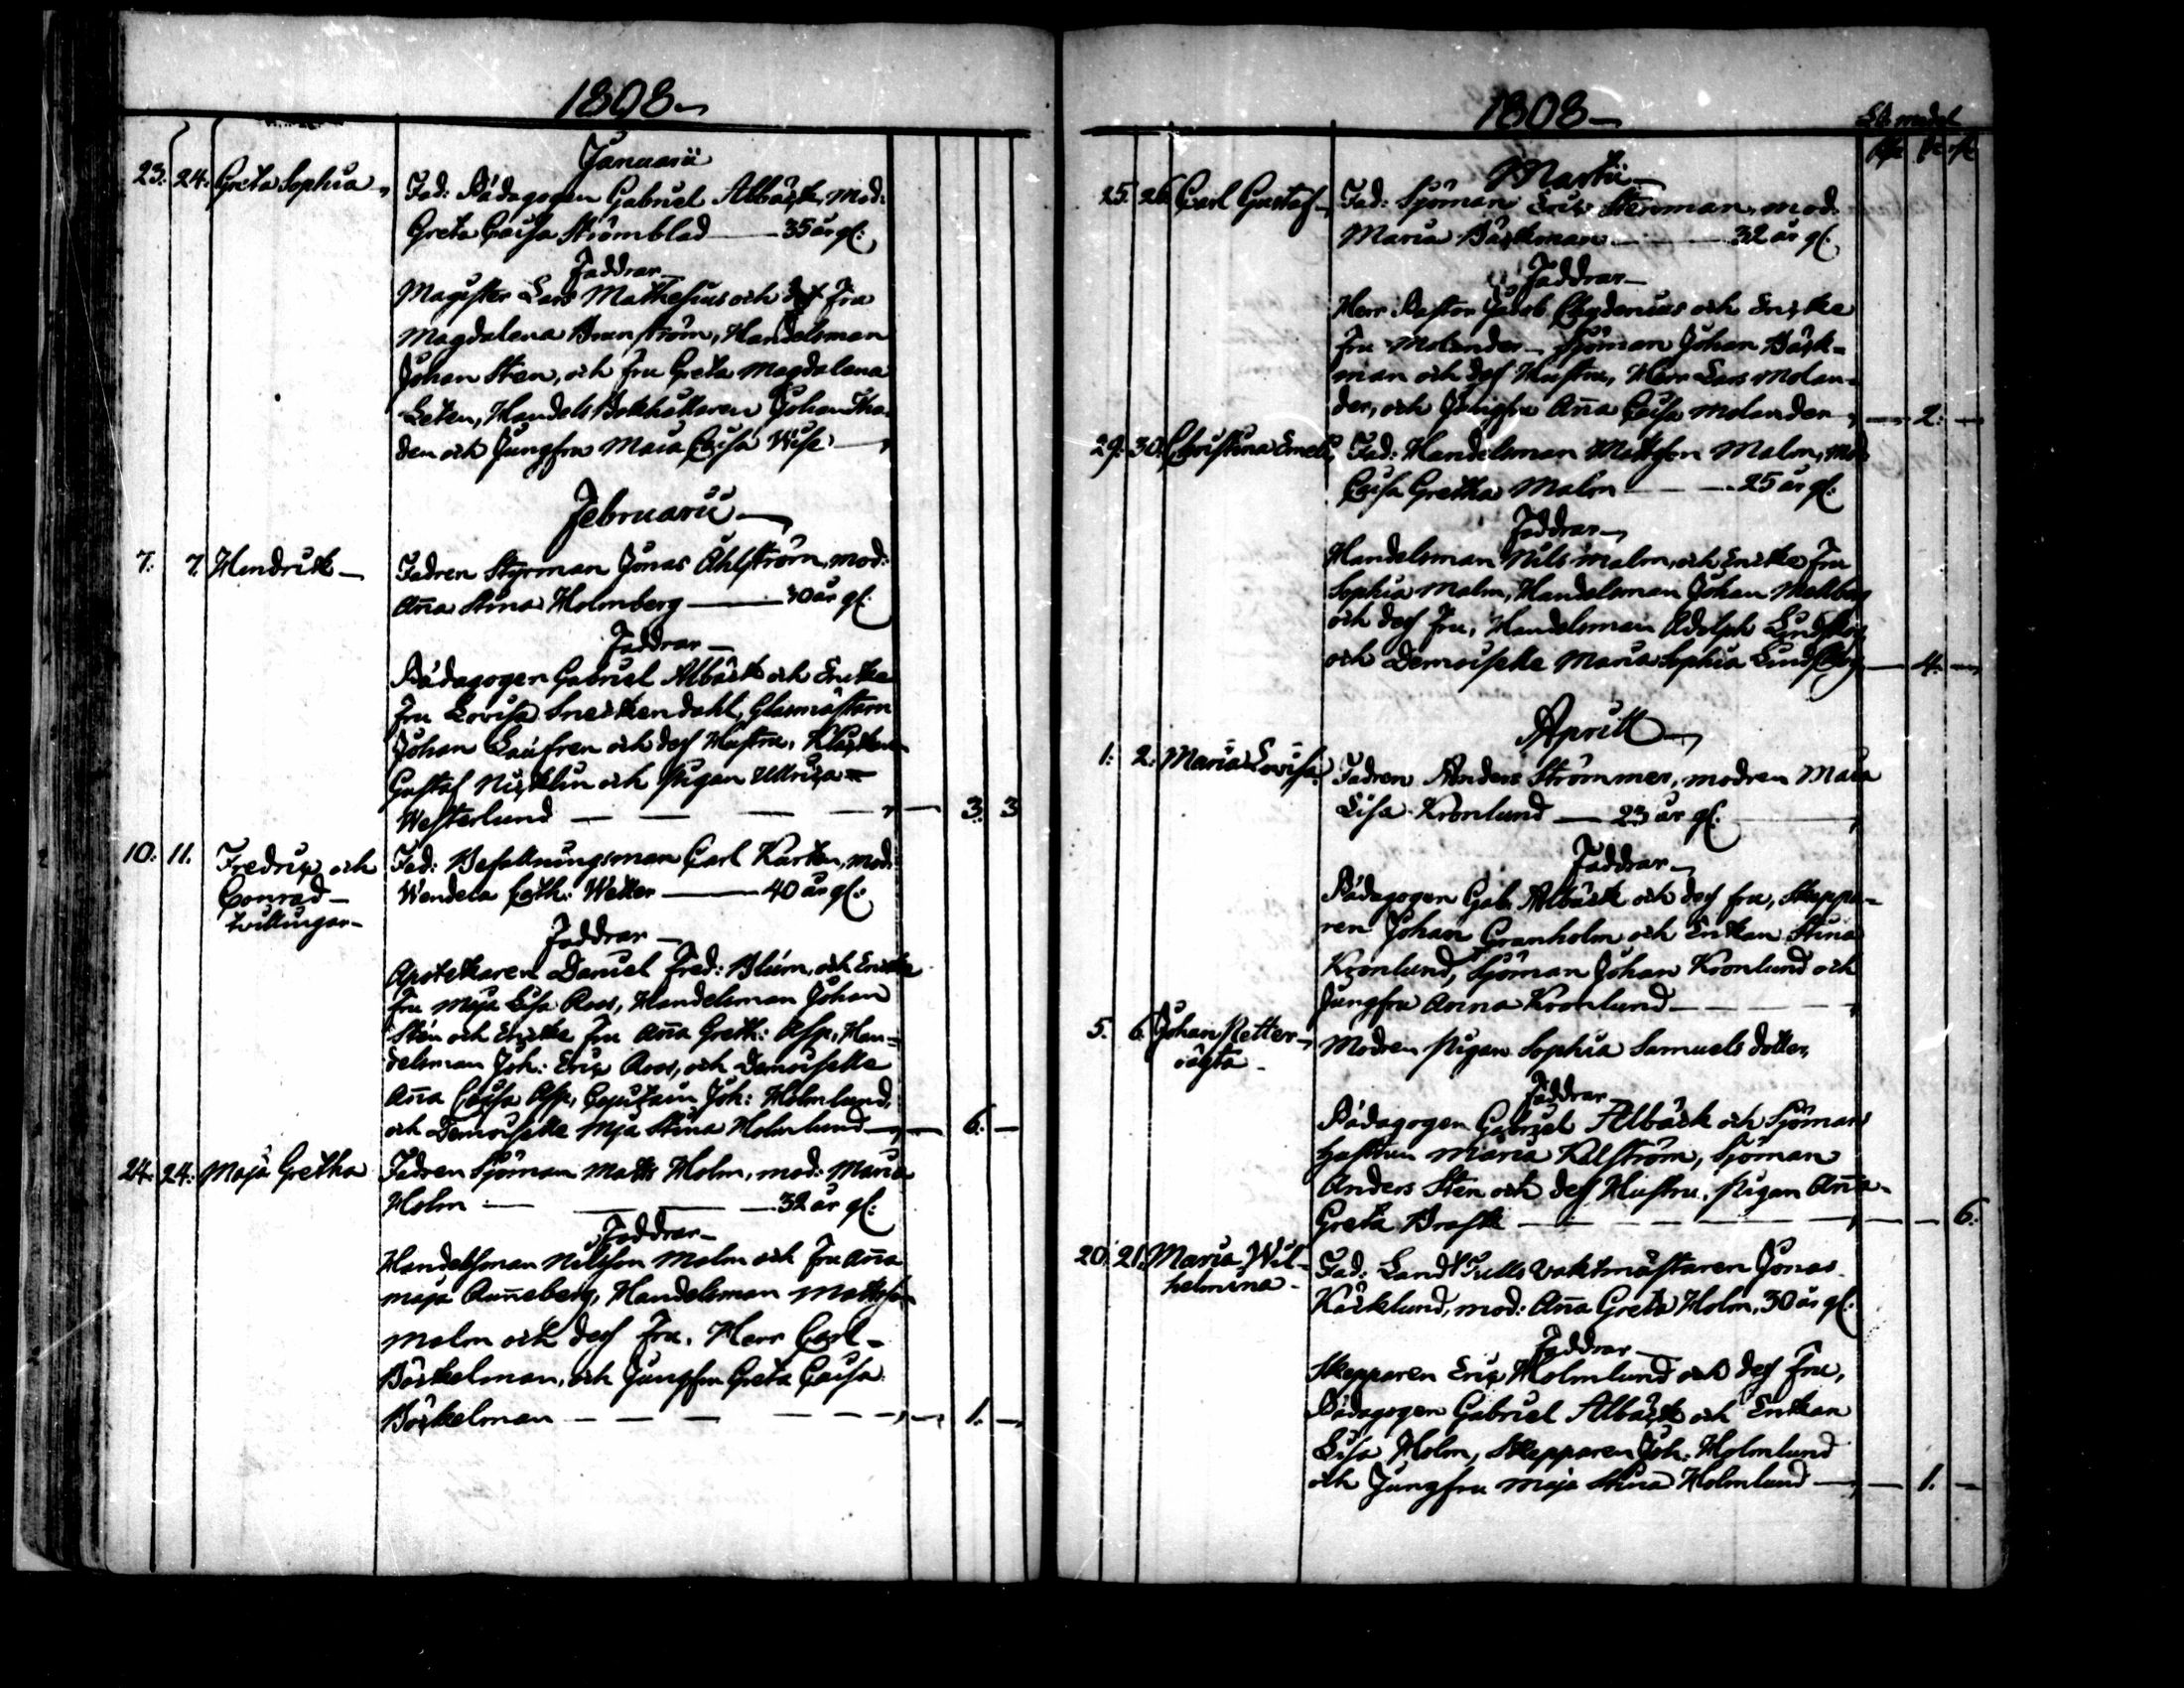 1808
Januarii
23. 24. Greta Sophia Fad: Pädagogen Gabriel Albäck, mod:
Greta Caisa Strömblad — 35 år gl:
Faddrar
Magister Lars Mathesius och Fru
Magdalena Brunström, Handelsman
Johan Sten, och fru Greta Magdalena
Leten, Handels Bokhållaren Johan
den och Jungfru Maia Caisa
Februarii
7. 7. Hendrick Fadren Styrman Jonas Åhlström, mod:
Aña Stina Holmberg — 30 år gl:
Faddrar
Pädagogen Gabriel Albäck och Encke
fru Lovisa Sneckendahl, Glasmästarn
Johan och dess Hustru,
Gustaf Nicklin och pigan Ulrica
Westerlund — 3. 3
10. 11. Fredric och Conrad tvillingar Fad: Befallningsman Carl Karten, mod:
Wendela Cath: Wetter — 40 år gl:
Faddrar
Apotekaren Daniel Fred: Blüm, och Encke
fru Maja Lisa Roos, Handelsman Johan
Stén och Encke fru Aña Greth: Asp, Han-
delsman Joh: Eric Roos, och Demoiselle
Aña Caisa Asp, Capitain Joh: Holmlund,
och Demoiselle Mja Stina Holmlund — 6. —
24. 24. Maja Gretha Fadren Sjöman Matts Holm, mod: Maria
Holm — 32 år gl:
Faddrar
Handelsman Nilsson Malm och Fru Aña
Maja Añeberg, Handelsman Mattsson
Malm och dess Fru, Herr Carl
Böckelman, och Jungfru Greta Caisa
Böckelman — 1. —
1808
Martii
25. 26. Carl Gustaf Fad: Sjöman Eric Stenman, mod:
Maria Bäckman — 32 år gl:
Faddrar
Herr Pastor Jacob Chydenius och Encke
fru Molander, Sjöman Johan Bäck-
man och dess Hustru, Herr Lars Molan-
der, och Jungfru Aña Caisa Molander — 2. —
29. 30. Christina Fad: Handelsman Mattsson Malm, Mod:
Caisa Gretha Malm — 25 år gl:
Faddrar
Handelsman Nils Malm, och Encke Fru
Sophia Malm, Handelsman Johan
och dess Fru, Handelsman Adolph Lindskog
och Demoiselle Maria Sophia Lindskog — 4. —
Aprill
1. 2. Maria Lovisa Fadren Anders Strömmer, modren Maia
Lisa Kronlund — 23 år gl:
Faddrar
Pädagogen Gab: Albäck och dess fru, Skeppa-
ren Johan Granholm och Enckan Stina
Kronlund, Sjöman Johan Kronlund och
Jungfru Anna Kronlund
5. 6. Johan Petter oägta Modren pigan Sophia Samuels dotter,
Faddrar
Pädagogen Gabriel Albäck och Sjömans
hustrun Maria Kelström, Sjöman
Anders Sten och dess Hustru, pigan Aña
Greta Brask — 6.
20. 21. Maria Wil-
helmina Fad: LandtTulls Vaktmästaren Jonas
Käcklund, mod: Aña Greta Holm, 30 år gl:
Faddrar
Skepparen Eric Holmlund och dess Fru,
Pädagogen Gabriel Albäck och Enckan
Lisa Holm, Skepparen Joh: Holmlund
och Jungfru Maja Stina Holmlund — 1. —